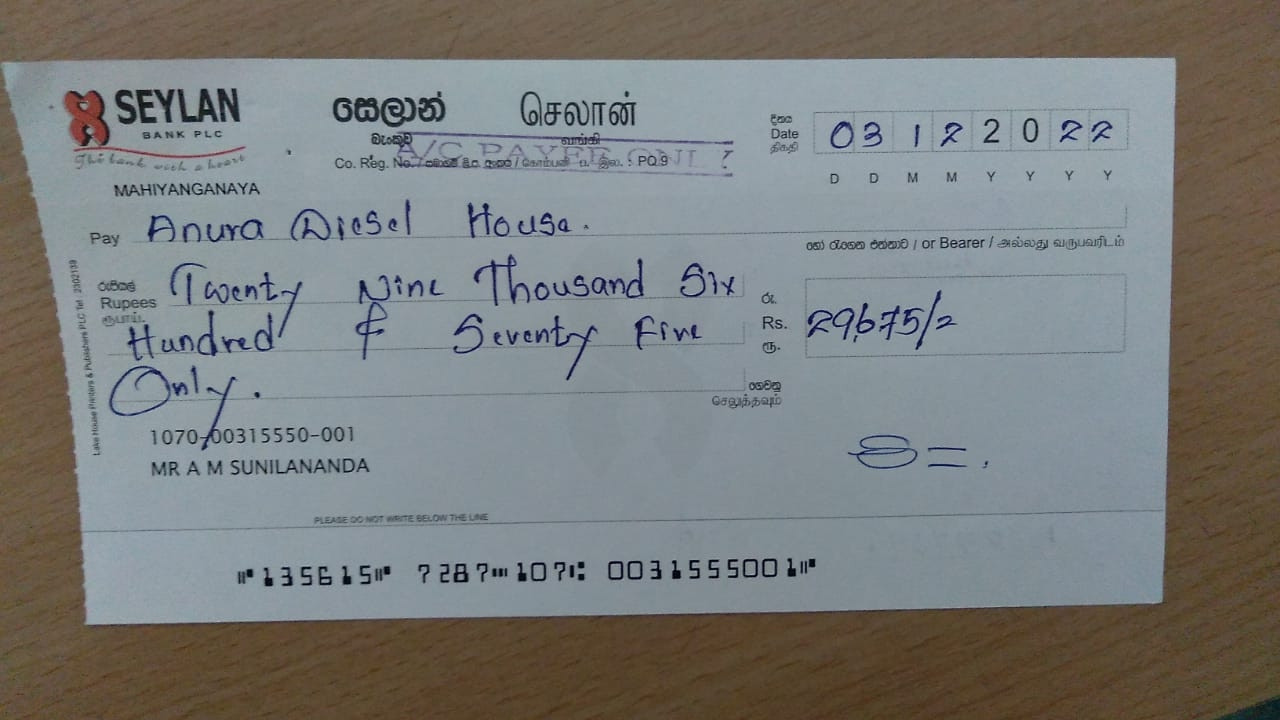 SEYLAN
BANK PLC
The bank with a heart
MAHIYANGANAYA
සෙලාන් செலான்
බැංකුව வங்கி
A/C PAYEE ONLY
Co. Reg. No. / PQ 9
දිනය
Date
திகதி
03122022
D D M M Y Y Y Y
Pay Anura Diesel House.
/ or Bearer / அல்லது வருபவரிடம்
රුපියල්
Rupees
ரூபாய்
Twenty Nine Thousand Six
Hundred & Seventy Five
Only.
රු.
Rs.
ரூ.
29,675/=
ගෙවනු
செலுத்தவும்
1070-00315550-001
MR A M SUNILANANDA
Lake House Printers & Publishers PLC Tel : 2302139
PLEASE DO NOT WRITE BELOW THE LINE
⑈135615⑈ 7287⑉107⑆ 003155500 1⑈